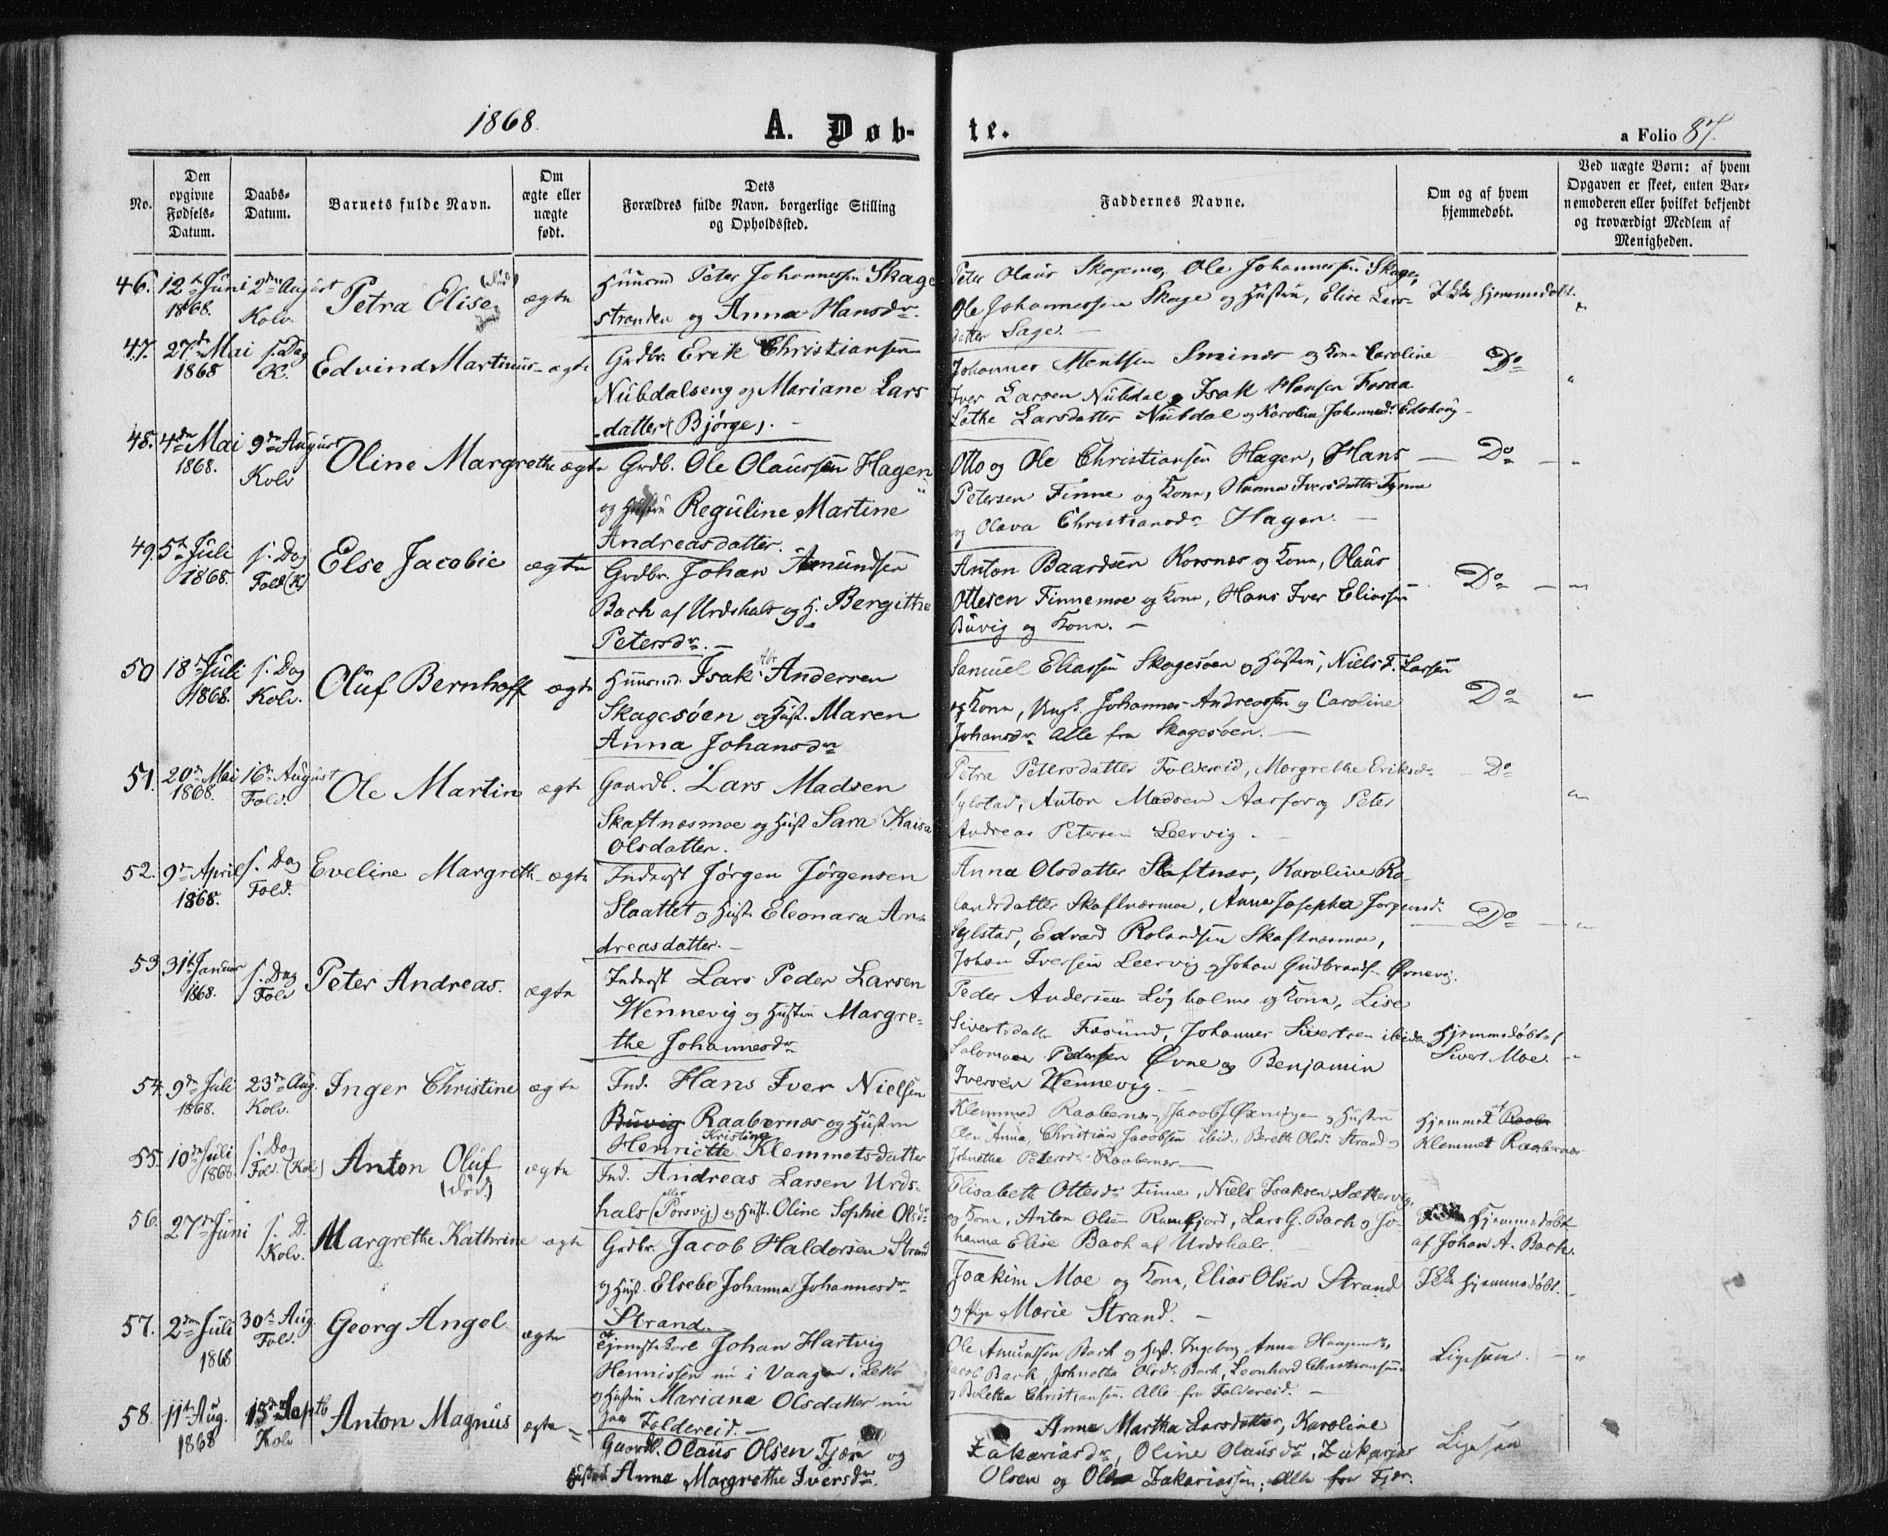 1868.
A. Døb-
te.
a Folio 87.
No.
Den opgivne Fødsels-Datum.
Daabs-Datum.
Barnets fulde Navn.
Om ægte eller nægte født.
Dets Forældres fulde Navn, borgerlige Stilling og Opholdssted.
Faddernes Navne.
Om og af hvem hjemmedøbt.
Ved uægte Børn: af hvem Opgaven er skeet, enten Barnemoderen eller hvilket bekjendt og troværdigt Medlem af Menigheden.
46. 12te Juni 1868. 2den August Kolv. Petra Elise (død) ægte
Huusmd Peter Johannessen Skage
stranden og Anna Hansdr.
Peter Olaus Skagemo, Ole Johannessen Skage,
Ole Johannessen Skage og Hustru, Elise Lars-
datter Sage.
Ikke hjemmedøbt.
47. 27de Mai 1868 s. Dag K. Edvind Martinus ægte
Grdbr. Erik Christiansen
Nubdalseng og Mariane Lars
datter (Bjørge).
Johannes Mentsen Smines og Kone Caroline
Iver Larsen Nubdal, Isak Hansen Fosaa
Lothe Larsdatter Nubdal og Karolina Johannesdr.
Do
48. 4de Mai 1868. 9de August Kolv Oline Margrethe ægte
Grdb. Ole Olaussen Hagen
og Hustru Reguline Martine
Andreasdatter.
Otto og Ole Christiansen Hagen, Hans
Petersen Finne og Kone, Hanna Iversdatter Finne
og Olava Christiansdr Hagen.
Do
49. 5te Juli 1868. s. Dag Fold (K) Else Jacobie ægte
Grdbr. Johan Amundsen
Bach af Urdshals og H. Bergithe
Petersdr.
Anton Baardsen Korsnæs og Kone, Olaus
Ottesen Finnemoe og Kone, Hans Iver Eliassen
Buvig og Kone.
Do
50 18de Juli 1868. s. Dag Kolv. Oluf Bernhoff ægte
Huusmd. Isak Andersen
Skagesøen og Hust. Maren
Anna Johansdr
Samuel Eliassen Skagesøen og Hustru, Niels F. Larsen
og Kone, Ungk. Johannes Andreassen og Caroline
Johansdr. Alle fra Skagesøen.
Do
51. 20de Mai 1868. 16de August Fold. Ole Martin ægte
Gaardb. Lars Madsen
Skaftnæsmoe og Hust Sara Kaisa
Olsdatter.
Petra Petersdatter Foldereid, Margrethe Eriksdr
Sylstad, Anton Madsen Aarfor og Peter
Andreas Petersen Leervig.
Do
52. 9de April 1868. s. Dag Fold. Eveline Margreth ægte
Inderst Jørgen Jørgensen
Slaattet og Hustr Eleonara An-
dreasdatter.
Anna Olsdatter Skaftnæs, Karoline Ro-
landsdatter Skaftnæsmoe, Anna Josepha Jørgensd.
Sylstad, Edvard Rolandsen Skaftnæsmoe,
Johan Iversen Leervig og Johan Gudbrands. Øvnevig.
Do
53. 31te Januar 1868. s. Dag Fold Peter Andreas. ægte
Inderst Lars Peder Larsen
Wennevig og Hustru Margre-
the Johannesdr
Peder Andersen Løgholme og Kone, Lise
Sivertsdatter Fosund, Johannes Sivertsen ibidm
Salomon Pedersen Øvne og Benjamin
Iversen Wennevig.
Hjemmedøbt af
Sivert Moe.
54. 9de Juli 1868. 23de Aug. Kolv. Inger Christine ægte
Ind. Hans Iver Nielsen
Buvig Raabernæs og Hustru
Henriette Kristine Klemmetsdatter
Klemmed Raabernæs, Jacob J. Øxningen og Hustru
Olen Anna, Christian Jacobsen ibid., Bereth Olsdr. Strand og
Johnetha Petersdr. Raabernæs
Hjemmedøbt
Klemmet Raabernæs
55. 10de Juli 1868. s. Dag Fol. (Kolv) Anton Oluf (død) ægte
Ind. Andreas Larsen Urds-
hals (eller Porsvig) og Hust. Oline Sophie Olsdr
Elisabeth Ottesdr Finne, Niels Isaksen Sættervig,
og Kone, Anton Olsen Ramfjord, Lars G. Bach og Jo-
hanna Elise Bach af Urdshals.
Hjemmedøbt
af Johan A. Bach.
56. 27de Juni s. D. Kolv. Margrethe Kathrine ægte
Grdbr. Jacob Haldorsen Strand
og Hust. Elsebe Johanna Johannesdr
Strand.
Joakim Moe og Kone, Elias Olsen Strand
og Pige Marie Strand.
Ikke hjemmedøbt.
57. 2den Juli 1868 30te Aug. Fold. Georg Angel ægte
Tjenestekarl Johan Hartvig
Hennissen nu i Vaagen i Lekø
og Hustru Mariane Olsdatter nu
paa Foldereid.
Ole Amunsen Bach og Hust. Ingeborg Anna Haagensdr,
Jacob Bach, Johnetha Olsdr Bach, Leonhard Christiansen
og Beletha Christiansen. Alle fra Foldereid.
Ligesom.
58. 11te Aug. 1868 13de Septb Kolv Anton Magnus ægte
Gaardb. Olaus Olsen Fjær og
Hustru Anna Margrethe Iversdr.
Anna Martha Larsdatter, Karoline
Zakariasdr, Oline Olausdr, Zakarias
Olsen og Zakariassen; Alle fra Fjær.
Ligesom